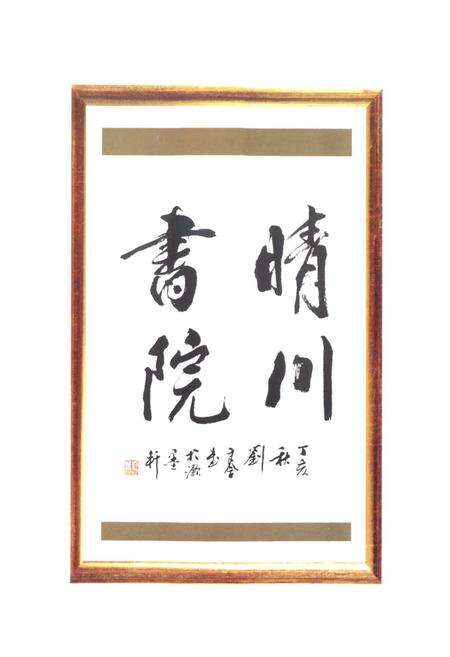 晴川
書院
丁亥
秋
劉
書
於漱
墨
軒